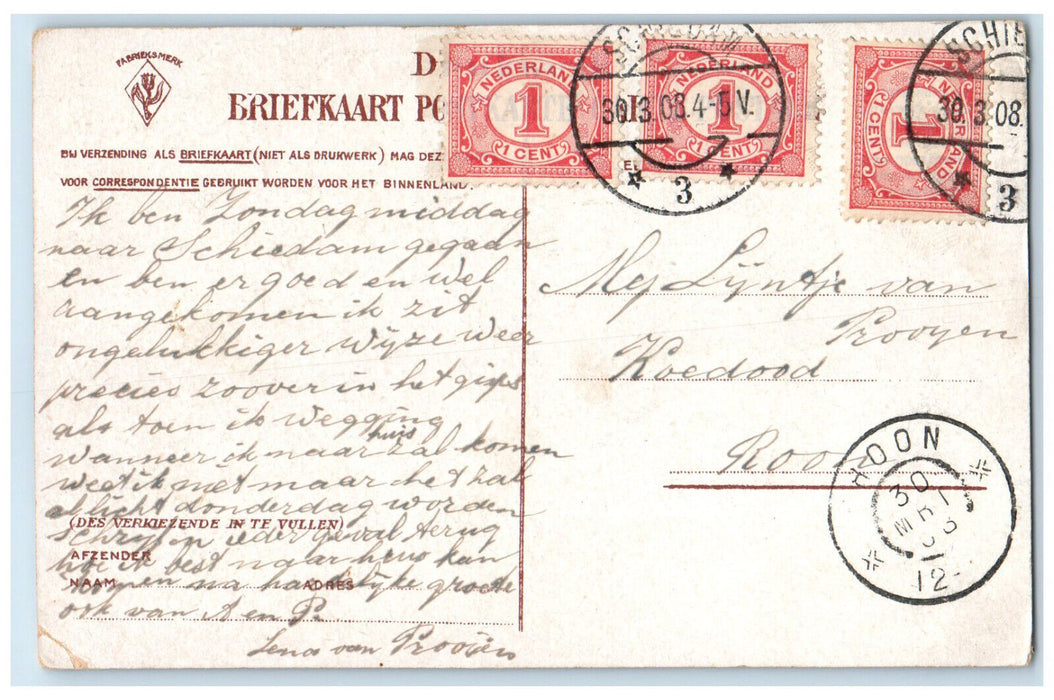 FABRIEKSMERK
D
BRIEFKAART PO
BIJ VERZENDING ALS BRIEFKAART (NIET ALS DRUKWERK) MAG DEZ
VOOR CORRESPONDENTIE GEBRUIKT WORDEN VOOR HET BINNENLAND.
NEDERLAND
1
1 CENT
NEDERLAND
1
1 CENT
NEDERLAND
1
1 CENT
SCHIEDAM
30.3.08.4-5V.
3
SCHIE
30.3.08.
3
Ik ben Zondag middag
naar Schiedam gegaan
en ben er goed en wel
aangekomen ik zit
ongelukkiger wijze weer
precies zoover in het gips
als toen ik wegging
wanneer ik naar huis zal komen
weet ik niet maar het zal
licht donderdag worden
(DES VERKIEZENDE IN TE VULLEN)
schryf in ieder geval terug
AFZENDER
hoe ik best naar huis kan
NAAM
ADRES
komen na hartelijke groete
ook van A en P.
Lena van Prooijen
Mej Lijntje van
Prooyen
Koedood
Roon
RHOON
30
MRT
08
12-